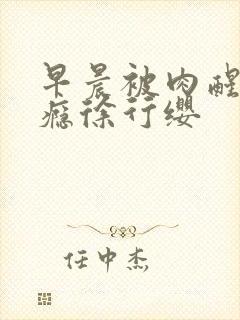 早晨被肉醒
瘾徐行缨
任中杰